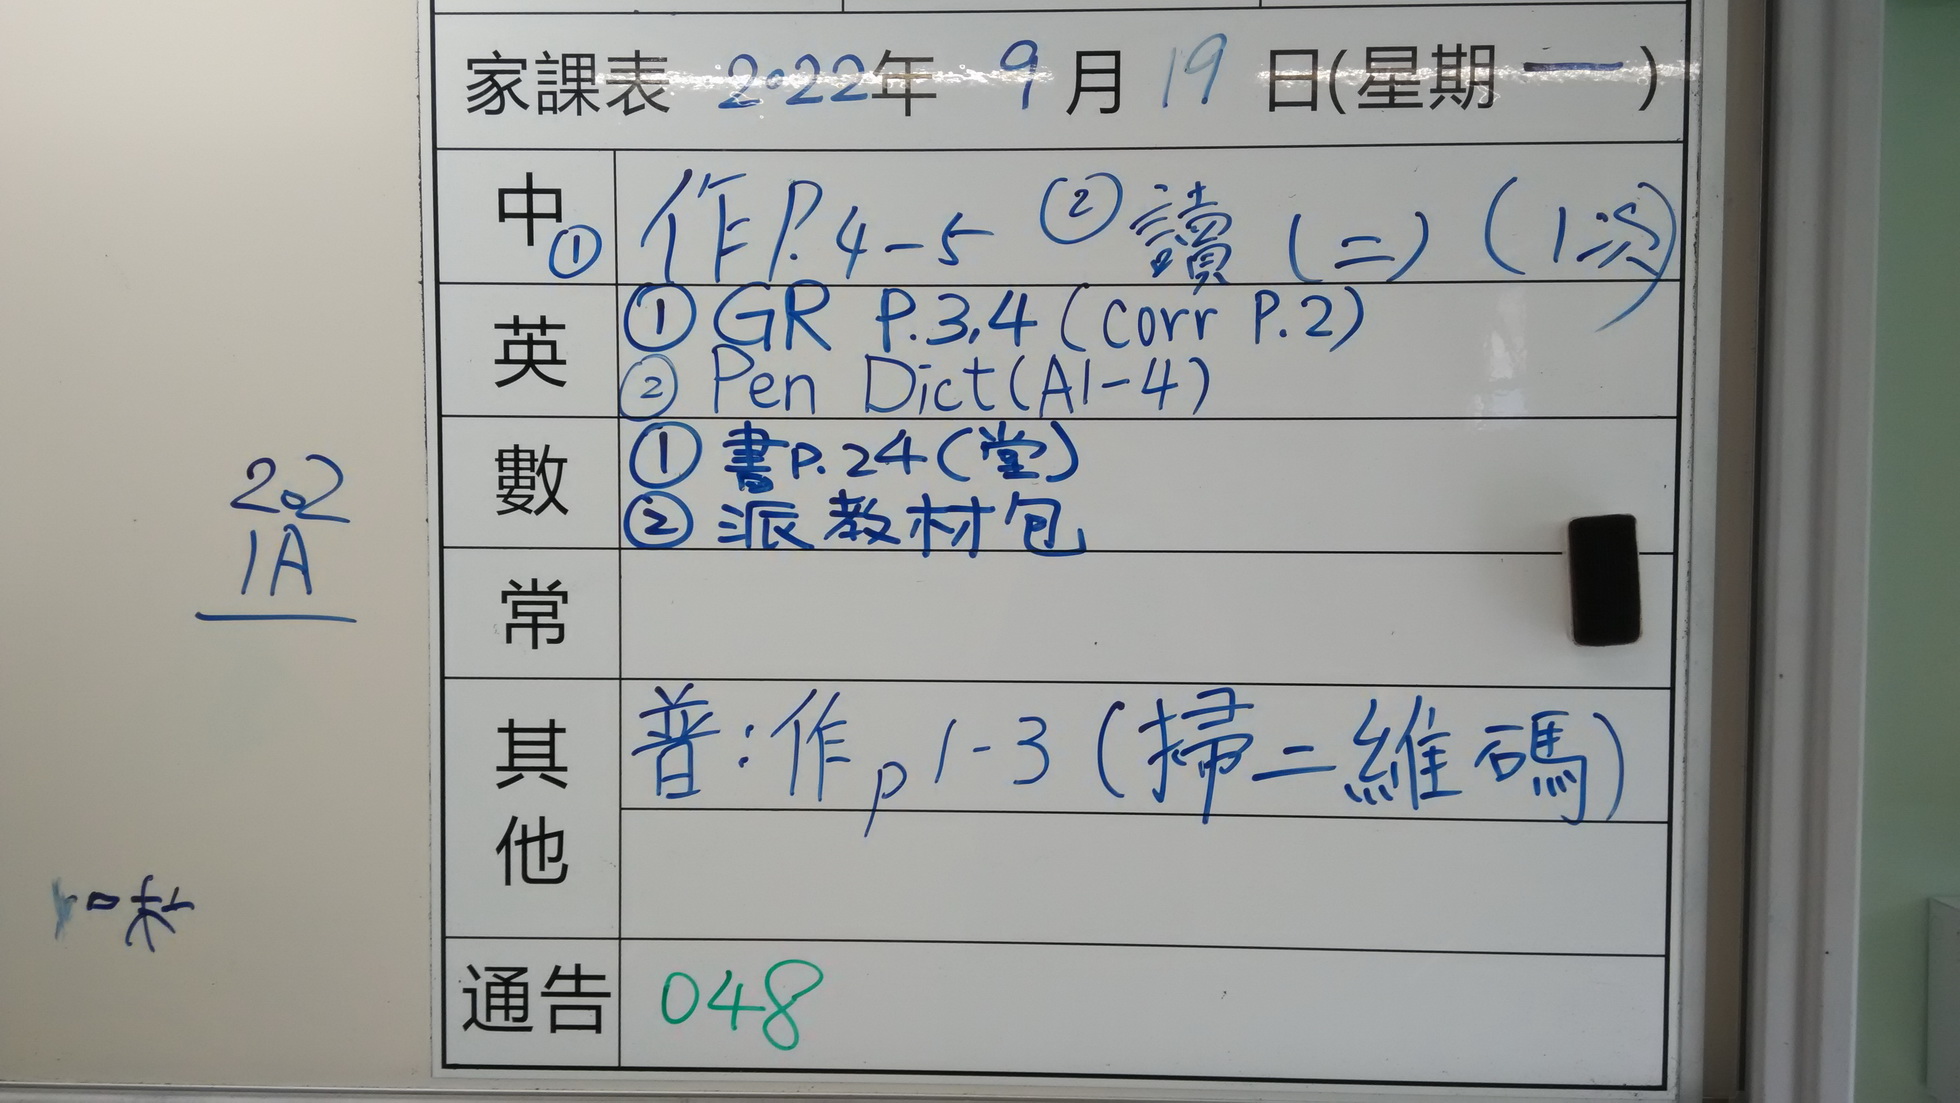 家課表 2022年 9月 19日(星期一)
中 ① 作P.4-5 ② 讀(二)(1次)
英 ① GR P.3,4 (corr P.2)
② Pen Dict (A1-4)
數 ① 書P.24(堂)
② 派教材包
常
其他 普:作p1-3(掃二維碼)
通告 048
2.2
1A